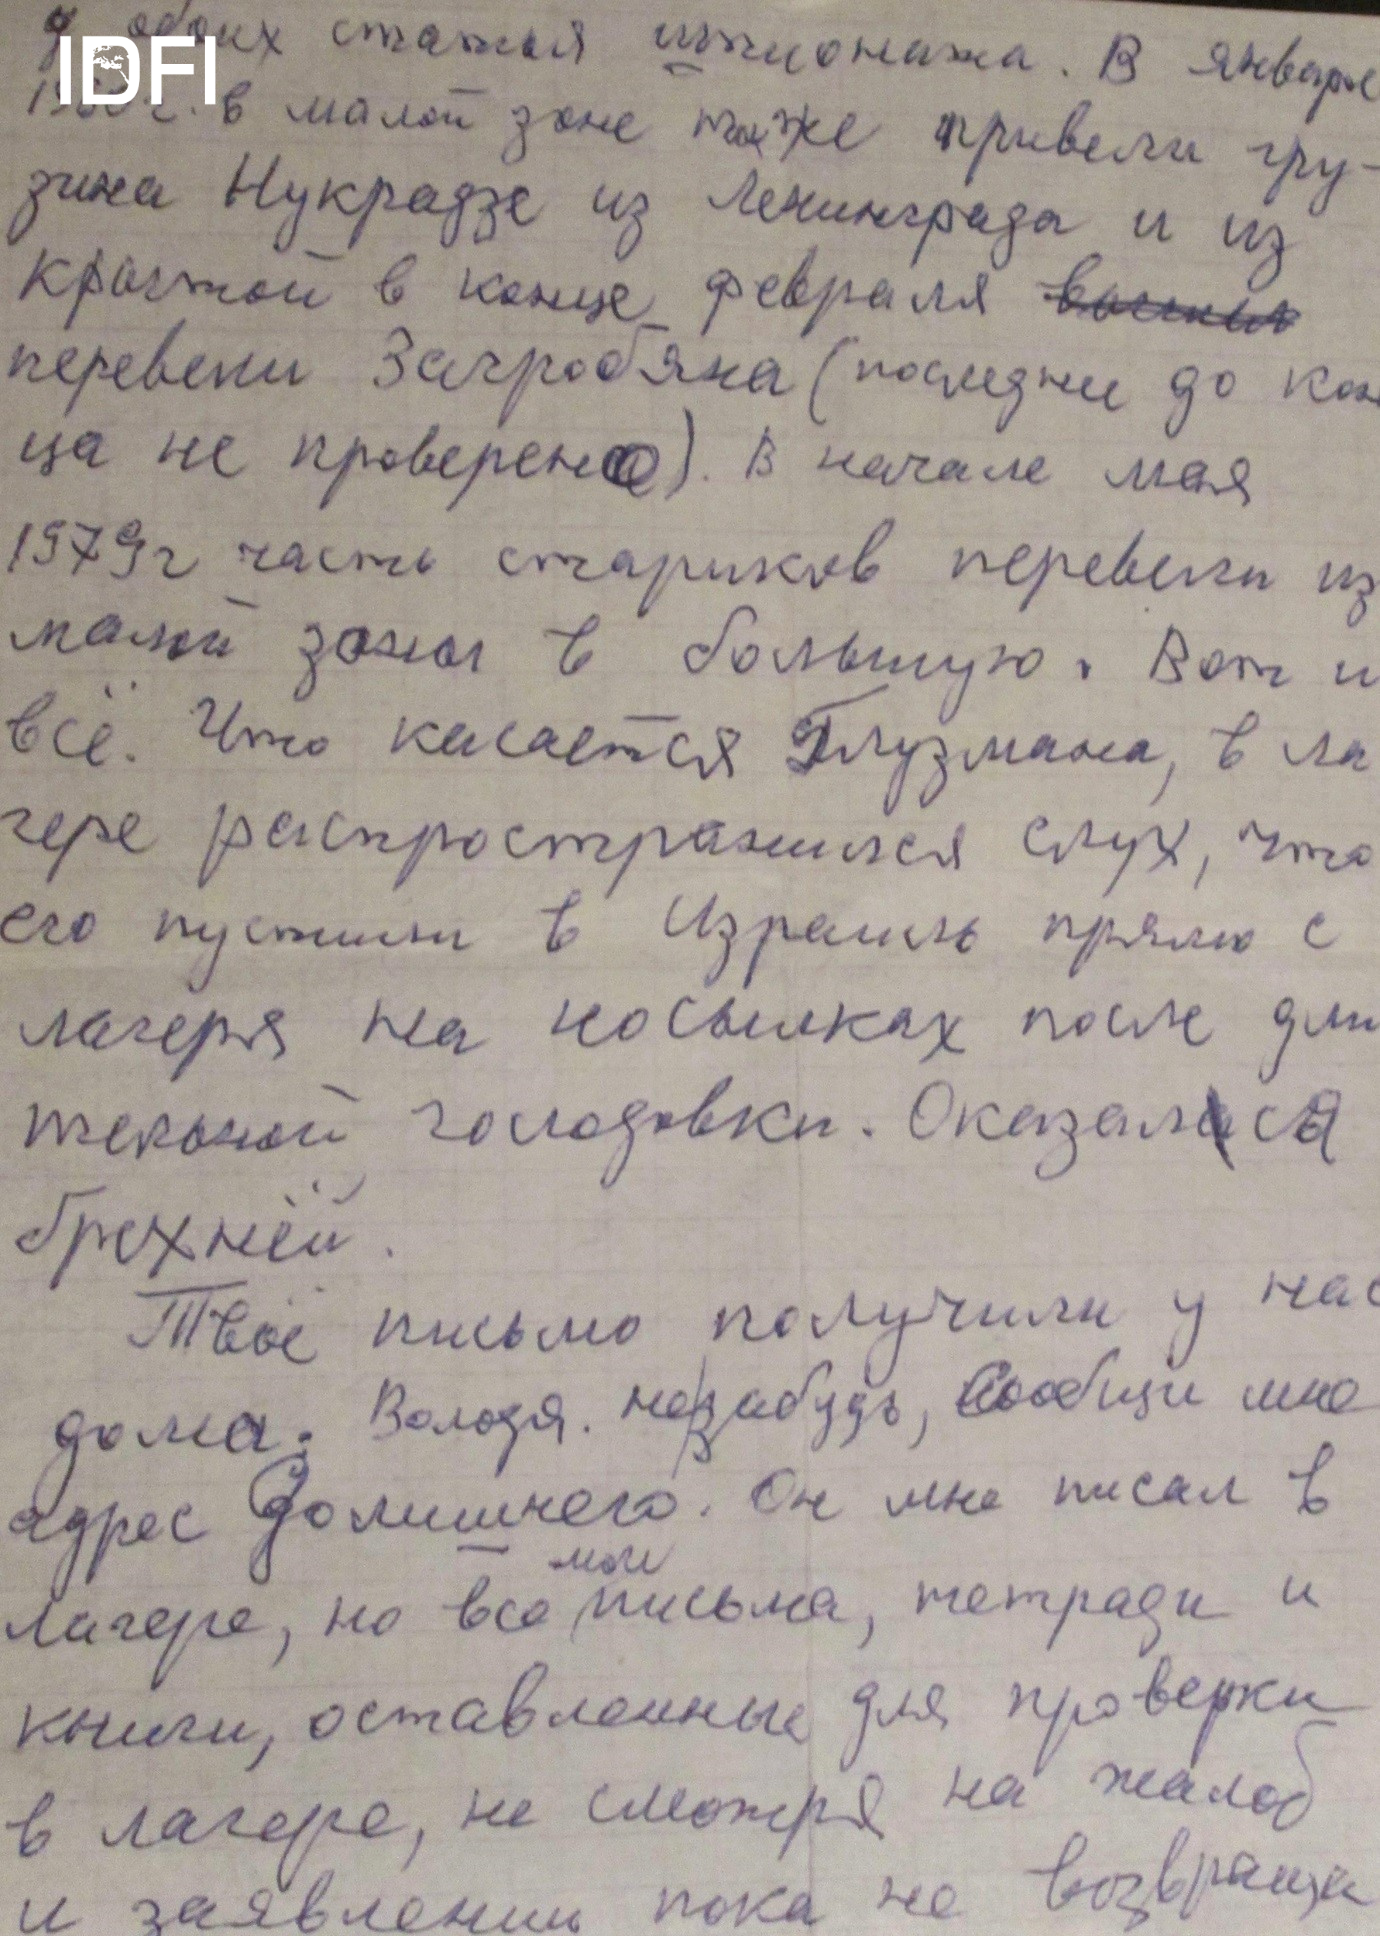 IDFI
у обоих статья шпионажа. В январе
в малой зоне тоже привели гру-
зина Нукрадзе из Ленинграда и из
крытой в конце февраля
перевели Загробяна (последнее до кон
ца не проверено). В начале мая
1979г часть стариков перевели из
малой зоны в большую. Вот и
всё. Что касается Глузмана, в ла
гере распространился слух, что
его пустили в Израиль прямо с
лагеря на носилках после дли
тельной голодовки. Оказалася
брехнёй.
Твоё письмо получили у нас
дома. Володя. не забудь, сообщи мне
адрес Долишнего. Он мне писал в
лагере, но все мои письма, тетради и
книги, оставленные для проверки
в лагере, не смотря на жалоб
и заявлении пока не возвраща